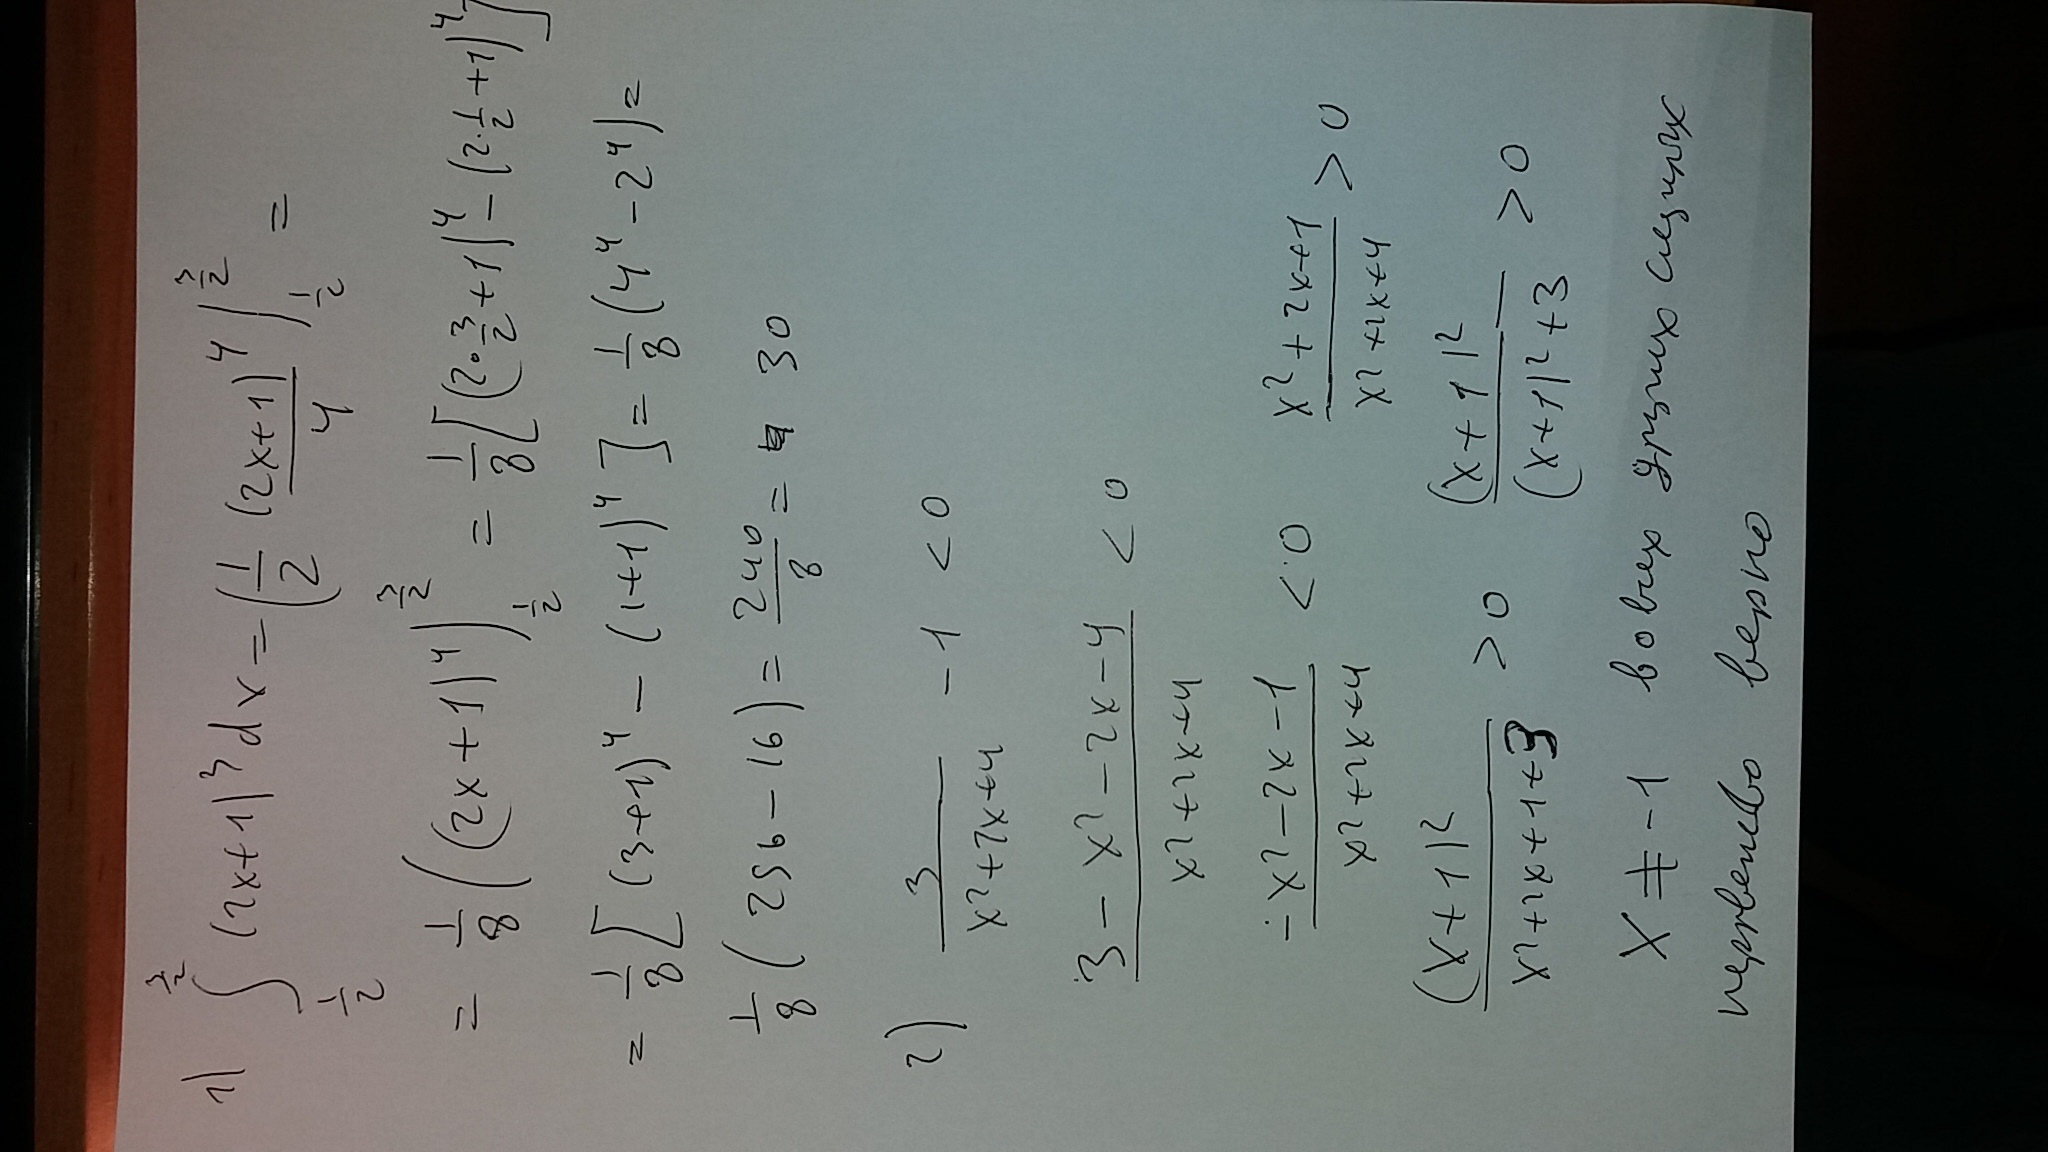 1) ∫_{1/2}^{3/2} (2x+1)^3 dx = (1/2 (2x+1)^4/4 |_{1/2}^{3/2} =
= 1/8 ((2x+1)^4 |_{1/2}^{3/2} = 1/8 [(2·3/2+1)^4 - (2·1/2+1)^4]
= 1/8 [(3+1)^4 - (1+1)^4] = 1/8 (4^4 - 2^4) =
1/8 (256-16) = 240/8 = 30
2) 3/(x2+2x+4) - 1 < 0
(3-x2-2x-4)/(x2+2x+4) < 0
(-x2-2x-1)/(x2+2x+4) < 0 (x2+2x+1)/(x2+2x+4) > 0
(x+1)^2/(x2+2x+1+3) > 0 (x+1)^2/((x+1)2+3) > 0
X ≠ -1 во всех других случаях
неравенство верно